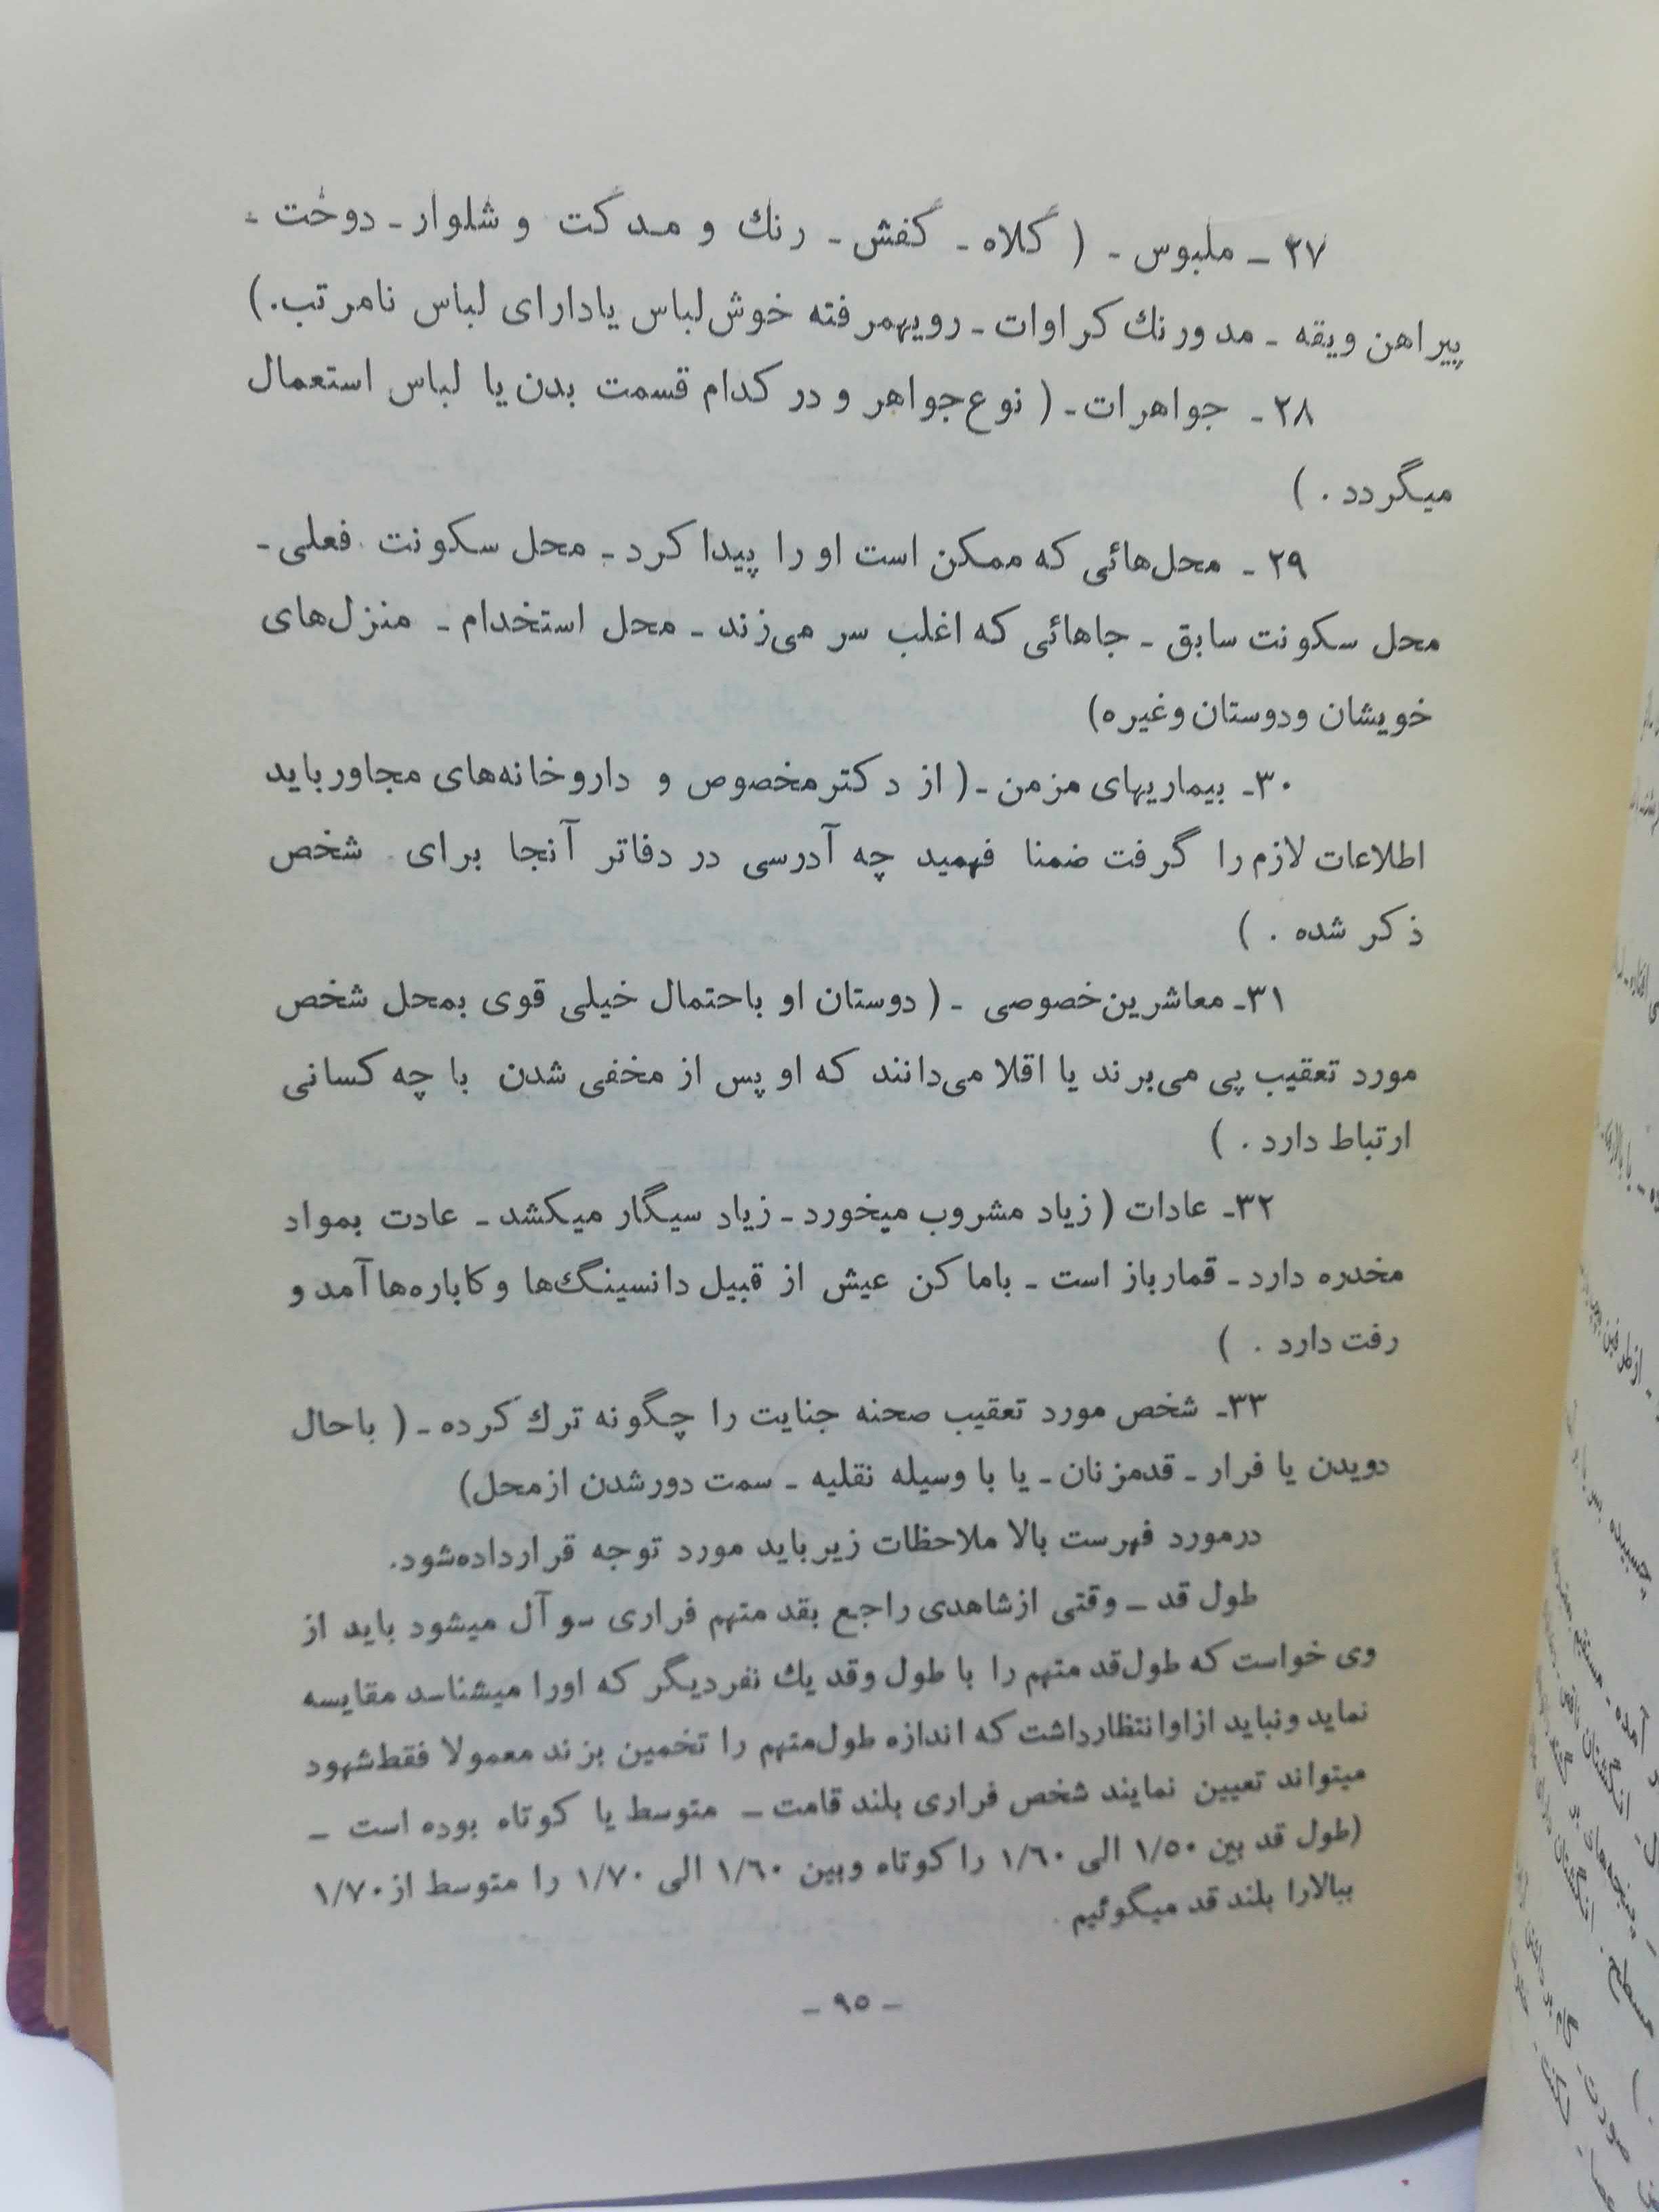 ۲۷ ـ ملبوس ـ ( کلاه ـ کفش ـ رنك و مد کت و شلوار ـ دوخت ـ
پیراهن ویقه ـ مد ورنك کراوات ـ رویهمرفته خوش‌لباس یادارای لباس نامرتب.)
۲۸ ـ جواهرات ـ ( نوع‌جواهر و در کدام قسمت بدن یا لباس استعمال
میگردد . )
۲۹ ـ محل‌هائی که ممکن است او را پیدا کرد ـ محل سکونت فعلی ـ
محل سکونت سابق ـ جاهائی که اغلب سر می‌زند ـ محل استخدام ـ منزل‌های
خویشان ودوستان وغیره)
۳۰ـ بیماریهای مزمن ـ ( از دکترمخصوص و داروخانه‌های مجاورباید
اطلاعات لازم را گرفت ضمنا فهمید چه آدرسی در دفاتر آنجا برای شخص
ذکر شده . )
۳۱ـ معاشرین‌خصوصی ـ ( دوستان او باحتمال خیلی قوی بمحل شخص
مورد تعقیب پی می‌برند یا اقلا می‌دانند که او پس از مخفی شدن با چه کسانی
ارتباط دارد . )
۳۲ـ عادات ( زیاد مشروب میخورد ـ زیاد سیگار میکشد ـ عادت بمواد
مخدره دارد ـ قمارباز است ـ باماکن عیش از قبیل دانسینگ‌ها وکاباره‌ها آمد و
رفت دارد . )
۳۳ـ شخص مورد تعقیب صحنه جنایت را چگونه ترك کرده ـ ( باحال
دویدن یا فرار ـ قدمزنان ـ یا با وسیله نقلیه ـ سمت دورشدن ازمحل)
درمورد فهرست بالا ملاحظات زیرباید مورد توجه قرارداده‌شود.
طول قد ـ وقتی ازشاهدی راجع بقد متهم فراری سوآل میشود باید از
وی خواست که طول‌قد متهم را با طول وقد یك نفردیگر که اورا میشناسد مقایسه
نماید ونباید ازاوانتظارداشت که اندازه طول‌متهم را تخمین بزند معمولا فقط‌شهود
میتواند تعیین نمایند شخص فراری بلند قامت ـ متوسط یا کوتاه بوده است ـ
(طول قد بین ۱/۵۰ الی ۱/۶۰ را کوتاه وبین ۱/۶۰ الی ۱/۷۰ را متوسط از ۱/۷۰
ببالارا بلند قد میگوئیم .
ـ ۹۵ ـ